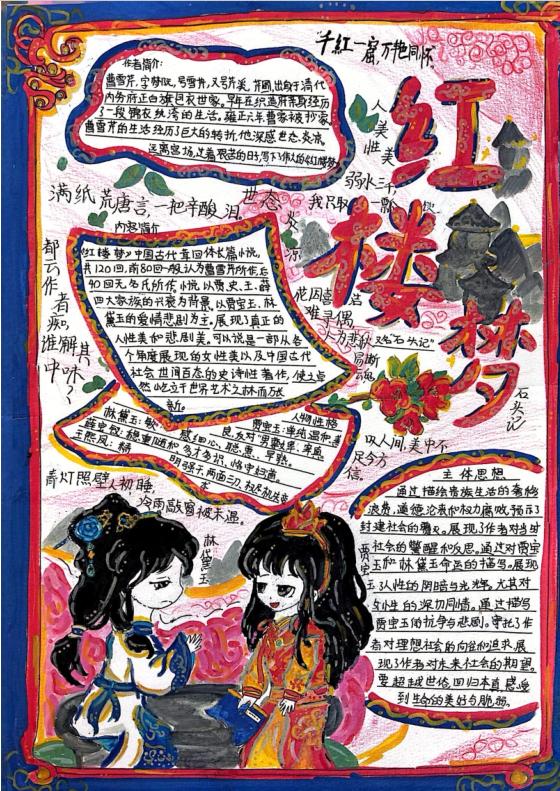 "千红一窟 万艳同怀
红楼梦
作者简介:
曹雪芹,字梦阮,号雪芹,又号芹溪、芹圃,出身于清代
内务府正白旗包衣世家。早年在织造府亲身经历
了一段锦衣纨绔的生活。雍正六年曹家被抄家,
曹雪芹的生活经历了巨大的转折,他深感世态炎凉,
远离官场,过着艰苦的日
人美性美
弱水三千,
我只取一瓢
满纸荒唐言,一把辛酸泪
都云作者痴,谁解其中味?
世态炎凉
内容简介
《红楼梦》中国古代章回体长篇小说,
共120回,前80回一般认为曹雪芹所作,后
40回无名氏所作。小说以贾、史、王、薛
四大家族的兴衰为背景,以贾宝玉、林
黛玉的爱情悲剧为主,展现了真正的
人性美和悲剧美,可以说是一部从各
个角度展现的女性美以及中国古代
社会世间百态的史诗性著作,使之卓
然屹立于世界艺术之林而万
难寻偶
又名石头记"
易断魂
石头记
叹人间,美中不
足今方信。
人物性格
林黛玉:敏
感细心、聪慧、早熟。
贾宝玉:单纯温和善
良,反对"男尊女卑"
薛宝钗:稳重随和、多才多识、恪守妇道。
王熙凤:精
明强干、两面三刀
青灯照壁人初睡,
冷雨敲窗被未温。
林黛玉
贾宝玉
主体思想
通过描绘贵族生活的奢侈
浪费、道德沦丧和权力腐败,预示了
封建社会的覆灭。展现了作者对当时
社会的警醒和反思。通过对贾宝
玉和林黛玉命运的描写,展现
了人性的阴暗与光辉,尤其对
女性的深切同情。通过描写
贾宝玉的抗争与悲剧,寄托了作
者对理想社会的向往和追求,展
现了作者对未来社会的期望。
要超越世俗,回归本真,感受
到生命的美好与脆弱。